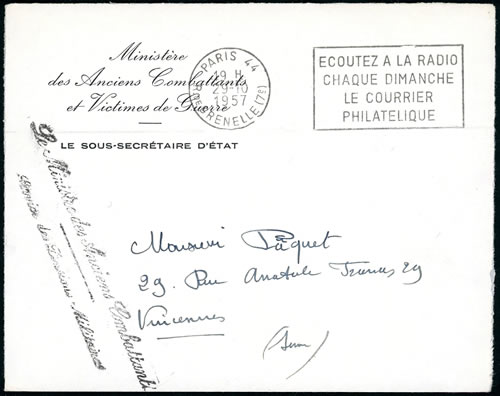 Ministère
des Anciens Combattants
et Victimes de Guerre
LE SOUS-SECRÉTAIRE D'ÉTAT
PARIS 44
19 H
29-10
1957
R. DE GRENELLE (7e)
ECOUTEZ A LA RADIO
CHAQUE DIMANCHE
LE COURRIER
PHILATELIQUE
Le Ministre des Anciens Combattants
Service des Pensions Militaires
Monsieur Pâquet
29. Rue Anatole France 29
Vincennes
(Seine)